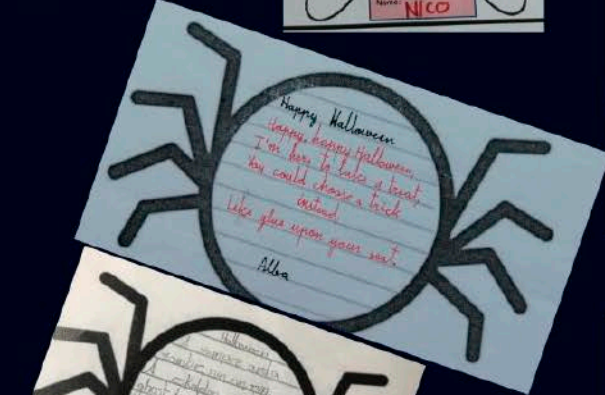 Name:
NICO
Happy Halloween
Happy, happy Halloween,
I'm here to take a treat,
You could choose a trick
instead
Like glue upon your seat.
Alba
Halloween
A vampire
A
ghost